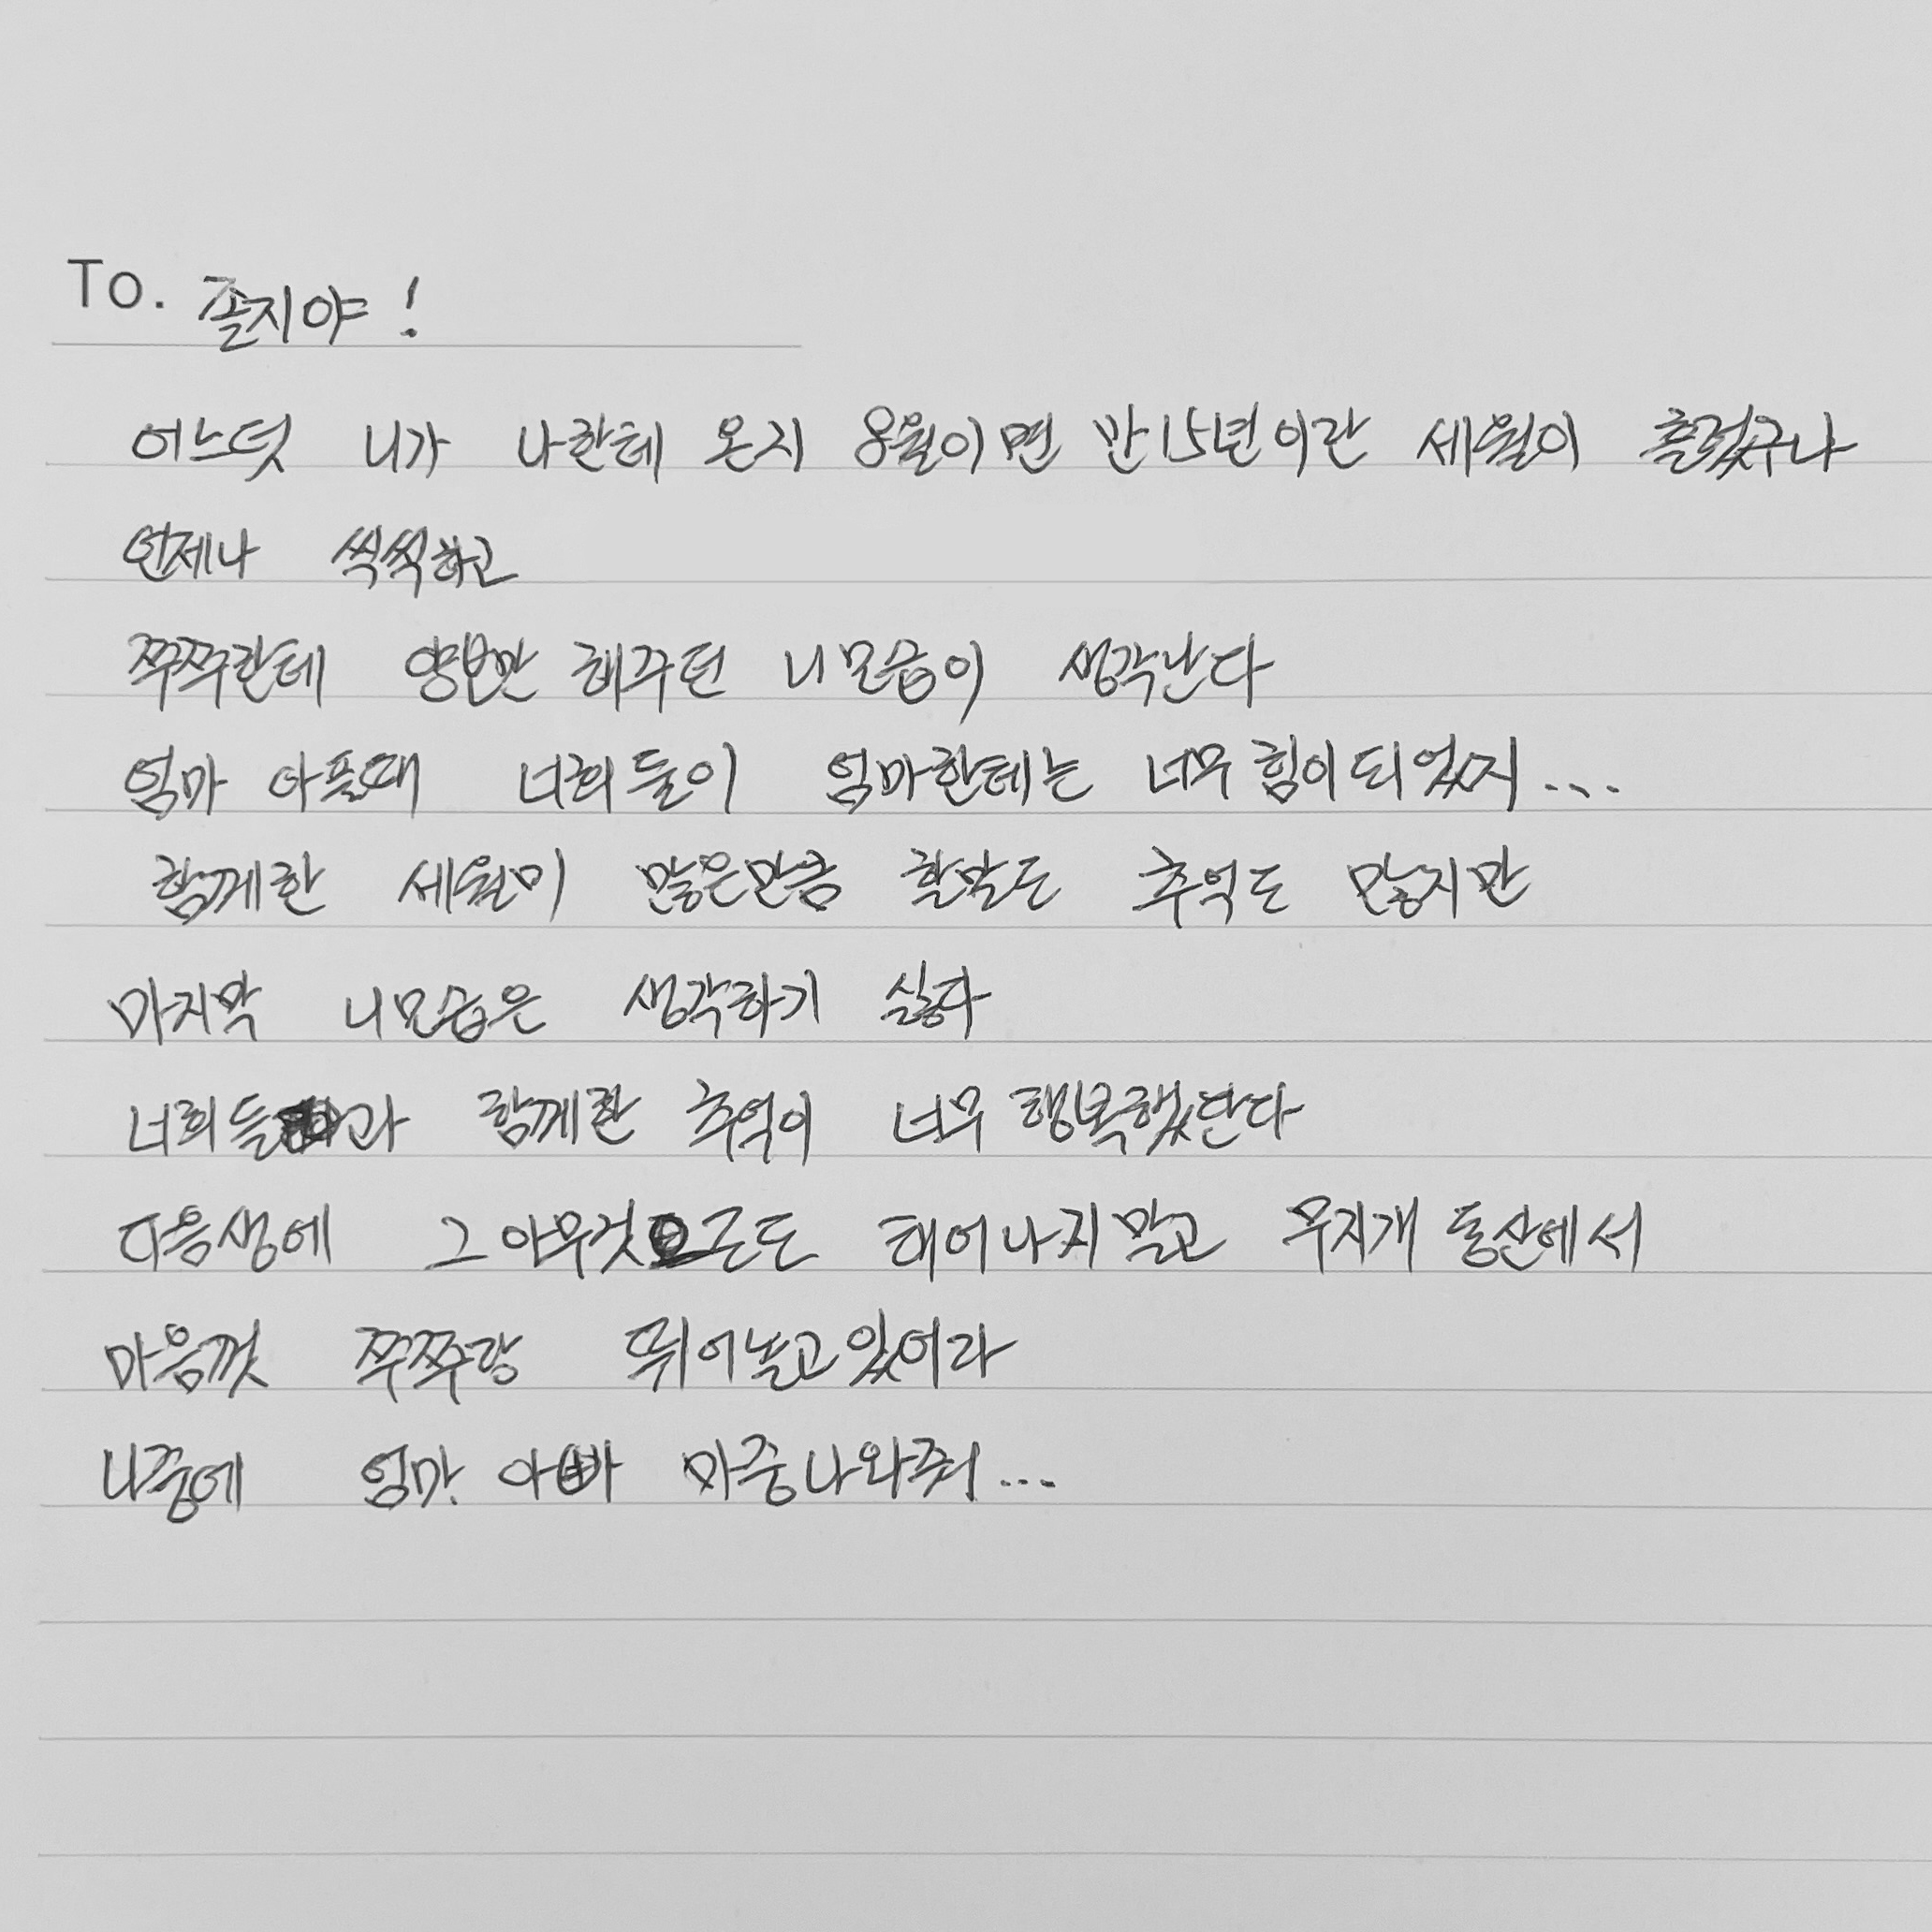 To. 졸지야!
어느덧 니가 나한테 온지 8월이면 만15년이란 세월이 흘렀구나
언제나 씩씩하고
쭈쭈한테 양보만 해주던 니모습이 생각난다
엄마 아플때 너희들이 엄마한테는 너무 힘이되었지...
함께한 세월이 많은만큼 할말도 추억도 많지만
마지막 니모습은 생각하기 싫다
너희들과 함께한 추억이 너무 행복했단다
다음생에 그 아무것으로도 태어나지말고 무지개 동산에서
마음껏 쭈쭈랑 뛰어놀고있어라
나중에 엄마. 아빠 마중나와줘...